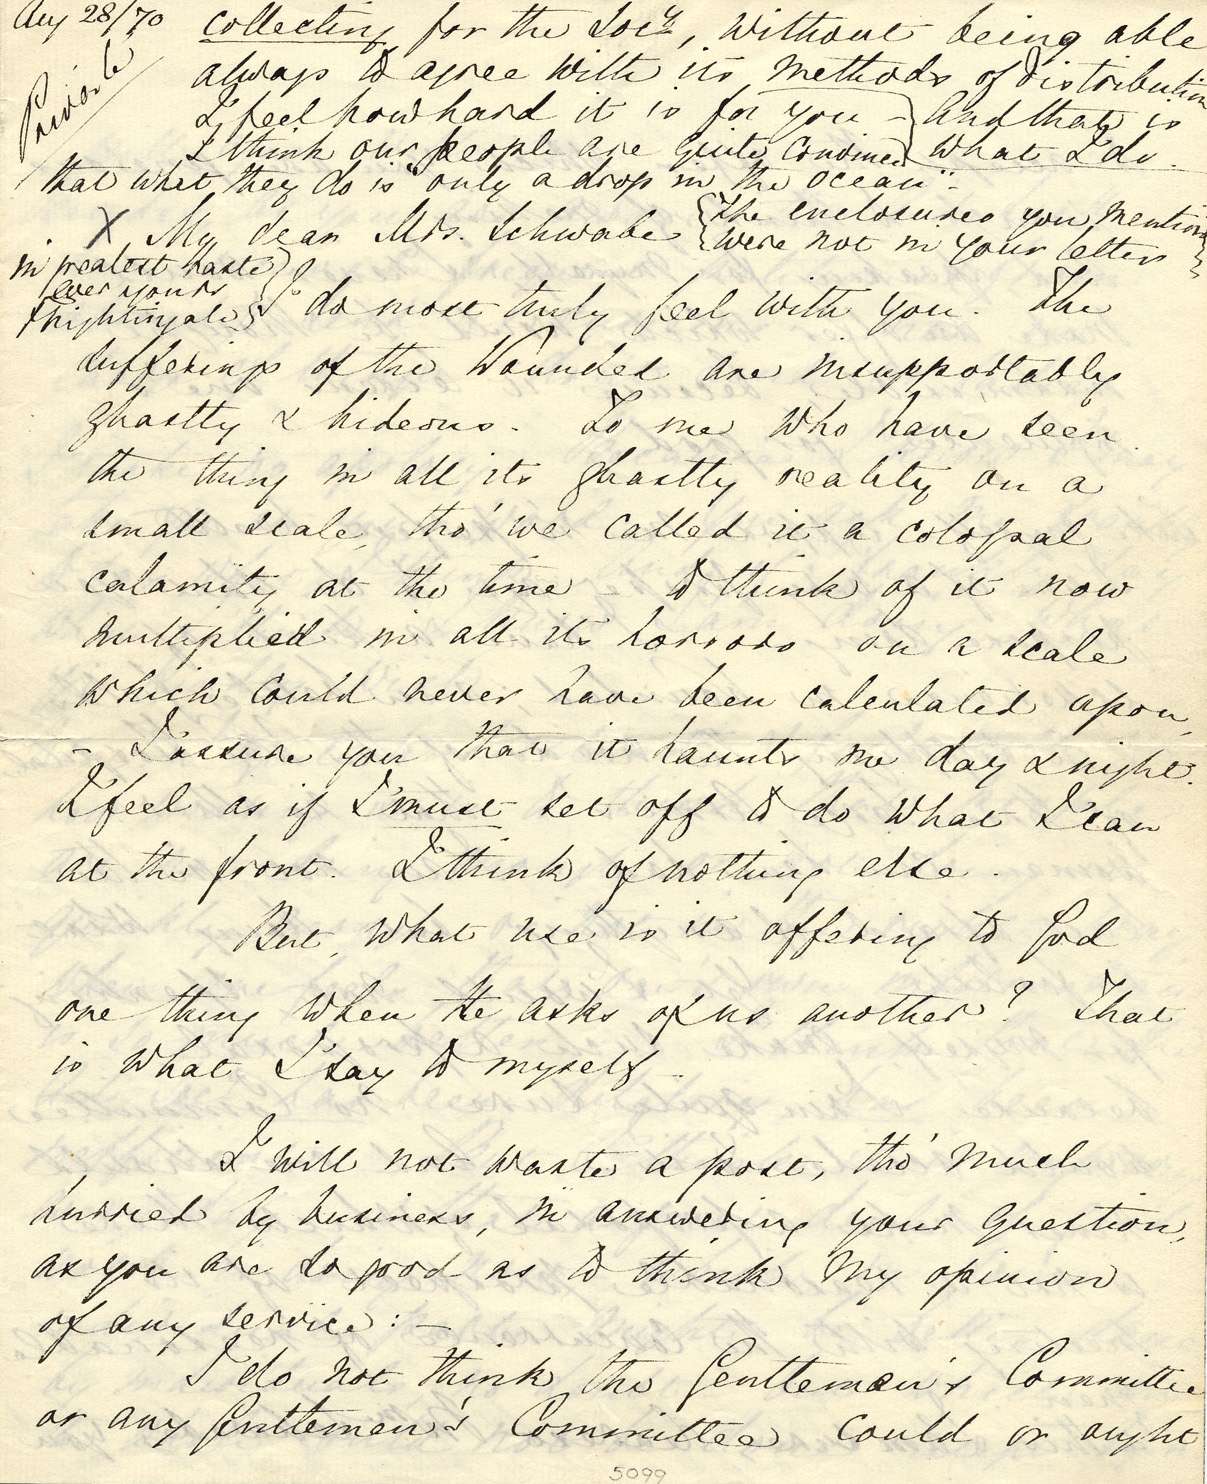 Aug 28/70
Private
collecting for the Socy, without being able
always to agree with its methods of distribution
I feel how hard it is for you - And that is
I think our people are quite convinced what I do.
that what they do is "only a drop in the ocean" -
X My dear Mrs. Schwabe
The enclosures you mention
were not in your letter
in greatest haste
ever yours
F Nightingale
I do most truly feel with you. The
sufferings of the Wounded are insupportably
ghastly & hideous. To me who have seen
the thing in all its ghastly reality on a
small scale, tho' we called it a colossal
calamity at the time - to think of it now
multiplied in all its horrors on a scale
which could never have been calculated upon,
- I assure you that it haunts me day & night.
I feel as if I must set off to do what I can
at the front. I think of nothing else.
But, what use is it offering to God
one thing when He asks of us another? That
is what I say to myself -
I will not waste a post, tho' much
hurried by business, in answering your question,
as you are so good as to think my opinion
of any service: -
I do not think the Gentlemen's Committee
or any Gentlemen's Committee could or ought
5099